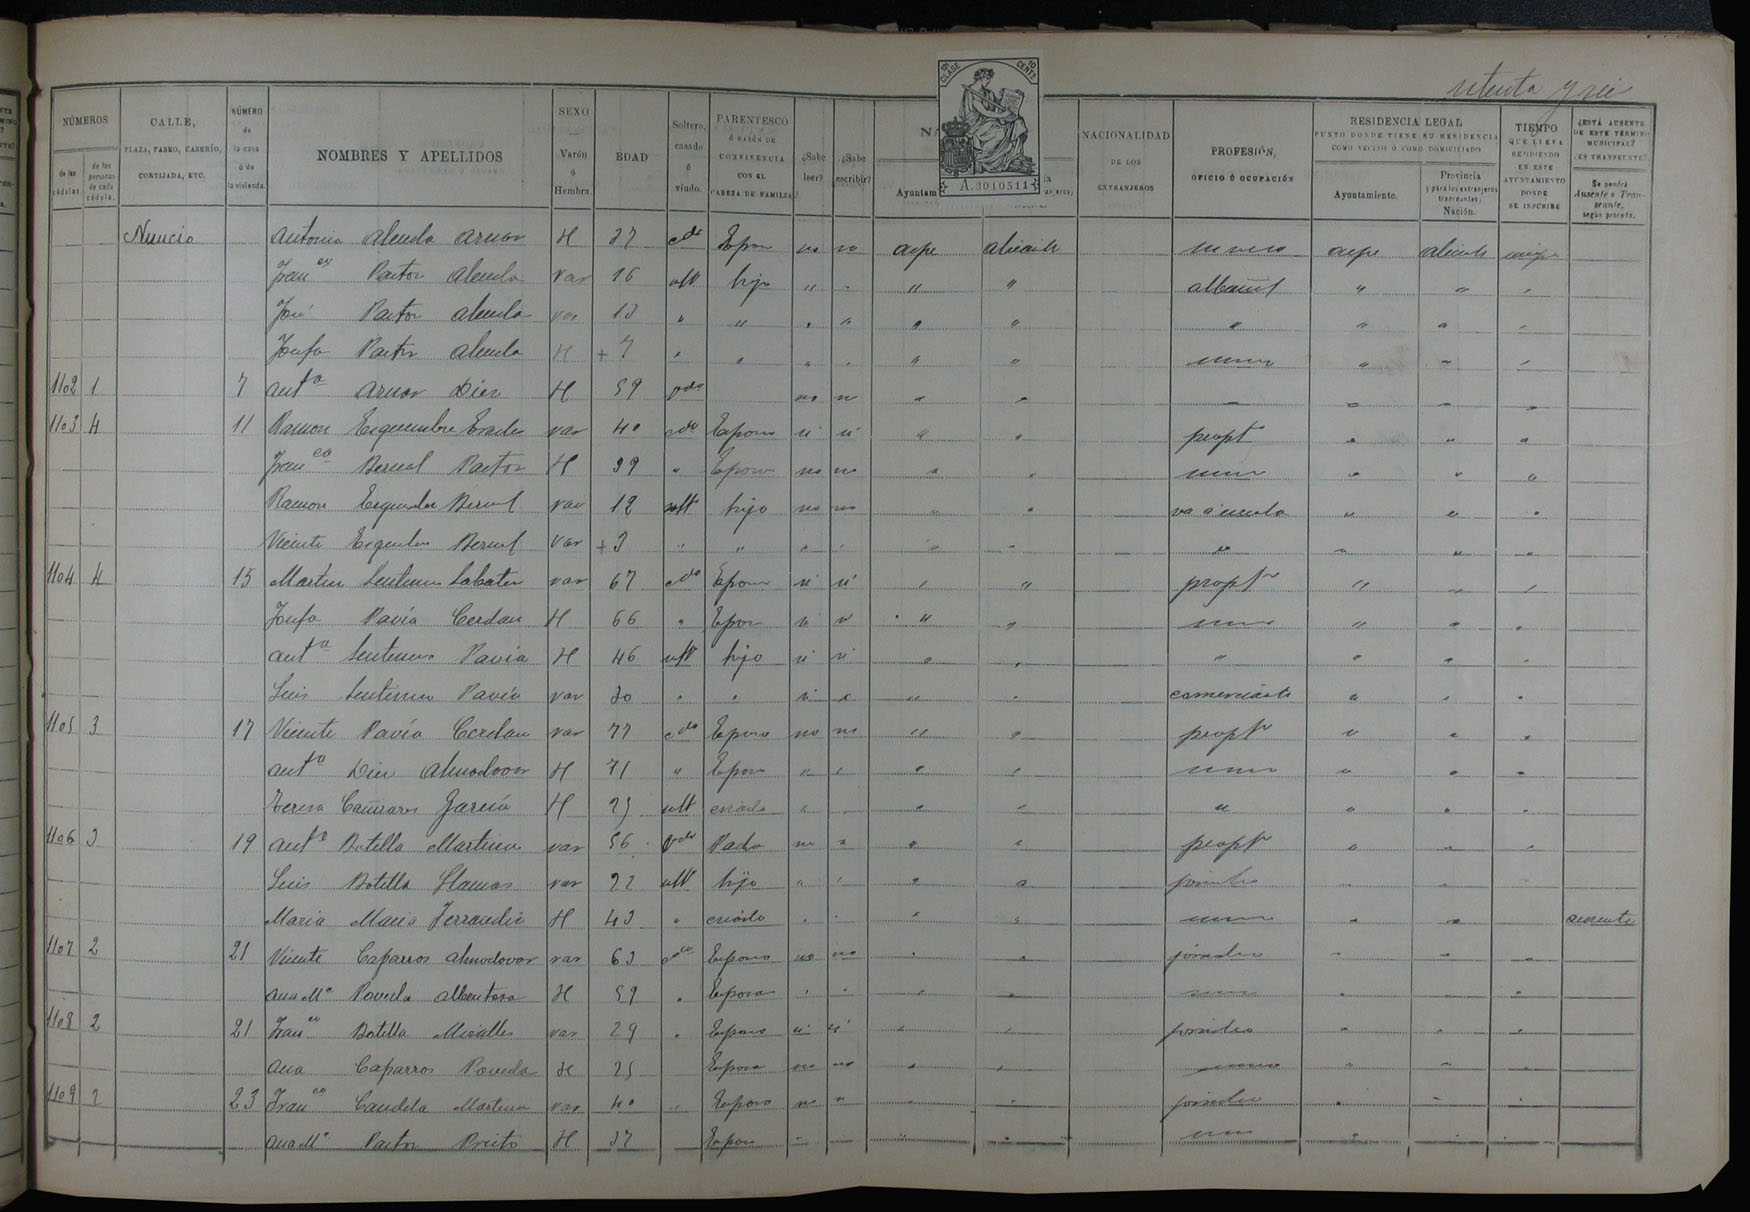 setenta y seis
12ª CLASE 10 CENTS
A.3010511
NÚMEROS de las cédulas. de las personas de cada cédula. CALLE, PLAZA, PASEO, CASERÍO, CORTIJADA, ETC. NÚMERO de la casa ó de la vivienda. NOMBRES Y APELLIDOS SEXO Varón ó Hembra. EDAD Soltero, casado ó viudo. PARENTESCO Ó RAZÓN DE CONVIVENCIA CON EL CABEZA DE FAMILIA ¿Sabe leer? ¿Sabe escribir? NA Ayuntam NACIONALIDAD DE LOS EXTRANJEROS PROFESIÓN, OFICIO Ú OCUPACIÓN RESIDENCIA LEGAL PUNTO DONDE TIENE SU RESIDENCIA COMO VECINO Ó COMO DOMICILIADO Ayuntamiento. Provincia y para los extranjeros transeuntes; Nación. TIEMPO QUE LLEVA RESIDIENDO EN ESTE AYUNTAMIENTO DONDE SE INSCRIBE ¿ESTÁ AUSENTE DE ESTE TÉRMINO MUNICIPAL? ¿ES TRANSEUNTE? Se pondrá Ausente ó Transeunte, según proceda.
Nuncio Antonia Alenda Arnor H 37 cda Espon no no aspe alicante aspe alicante
Franco Pastor Alenda var 16 solt hijo " " " " albañil " " "
José Pastor Alenda var 13 " " " " " " " " " "
Josefa Pastor Alenda H + 7 " " " " " " " " "
1102 1 7 Anta Arnor Dies H 59 vda no no " " " " " "
1103 4 11 Ramon Esquembre var 40 cdo Esposo si si " " propt " " "
Franca Bernal Pastor H 39 " Esposa no no " " " " "
Ramon Esquembre Bernal var 12 solt hijo no no " " va á escuela " " "
Vicente Esquembre Bernal var + 3 " " " " " " " " " "
1104 4 15 Martin Sabater var 67 cdo Esposo si si " " propt " " "
Josefa Pavía Cerdan H 66 " Espon si si " " " " "
Anta Pavía H 46 solt hija si si " " " " " "
Luis Pavía var 30 " " si si " " comerciante " " "
1105 3 17 Vicente Pavía Cerdan var 77 cdo Esposo no no " " propt " " "
Anta Dies Almodovar H 71 " Esposa " " " " " " "
Teresa Cañizares García H 25 solt criada " " " " " " " "
1106 3 19 Anto Botella Martinez var 56 vdo Padre no " " " propt " " "
Luis Botella Llamas var 22 solt hijo " " " " jornalero " " "
Maria Macia Ferrandiz H 43 " criada " " " " " " ausente
1107 2 21 Vicente Caparros Almodovar var 63 cdo Esposo no no " " jornalero " " "
Ana Mª Poveda Albentosa H 59 " Esposa " " " " " " "
1108 2 21 Franco Botella Miralles var 29 " Esposo si si " " jornalero " " "
Ana Caparros Poveda H 25 Esposa no no " " " " "
1109 2 23 Franco Candela Martinez var 40 " Esposo no n " " jornalero " " "
Ana Mª Pastor Prieto H 37 Espon " " " " " " "